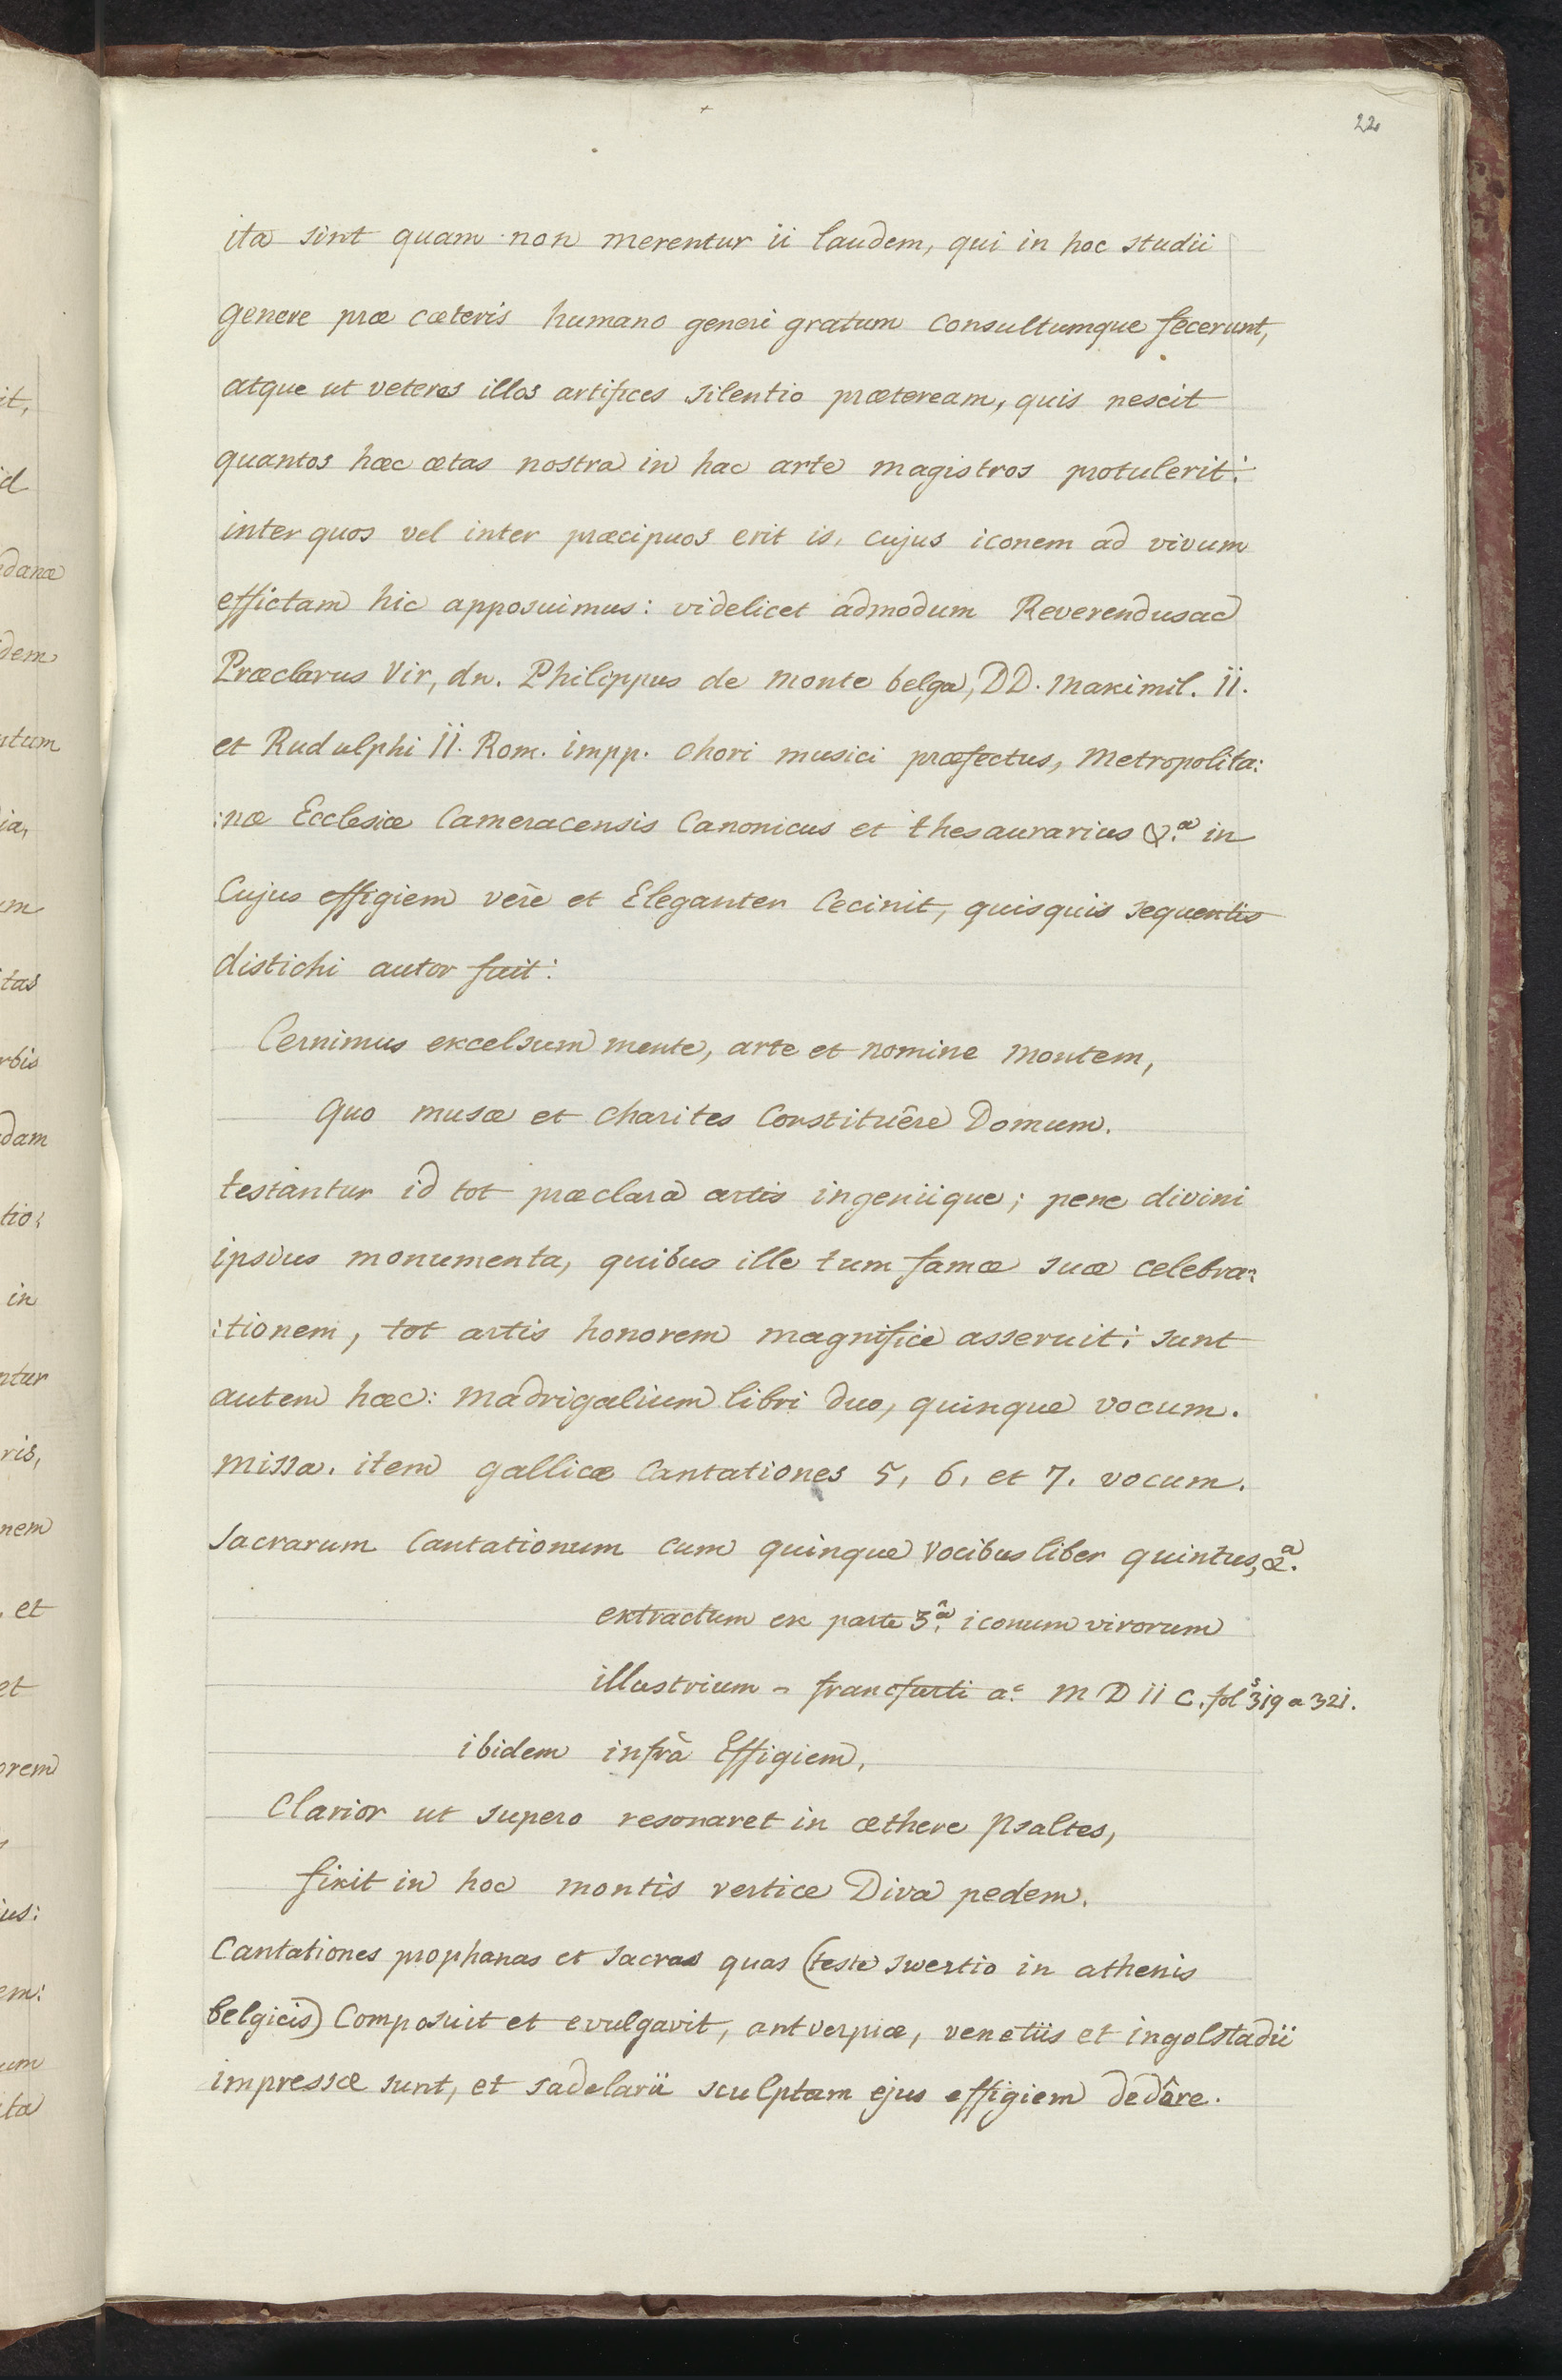 22
ita sint quam non merentur ii laudem, qui in hoc studii
genere præ cæteris humano generi gratum consultumque fecerunt,
atque ut veteres illos artifices silentio præteream, quis nescit
quantos hæc ætas nostra in hac arte magistros protulerit:
inter quos vel inter præcipuos erit is, cujus iconem ad vivum
effictam hic apposuimus: videlicet admodum Reverendus ac
Præclarus Vir, dn. Philippus de Monte belga, DD. Maximil. II.
et Rudulphi II. Rom. impp. Chori musici præfectus, Metropolita:
:næ Ecclesiæ Cameracensis Canonicus et thesaurarius &.ª in
Cujus effigiem verè et Eleganter Cecinit, quisquis sequentis
distichi autor fuit:
Cernimus excelsum mente, arte et nomine Montem,
Quo musæ et charites Constituêre Domum.
testantur id tot præclara artis ingeniique; pene divini
ipsius monumenta, quibus ille tum famæ suæ celebra:
:tionem, tot artis honorem magnifice asseruit: sunt
autem hæc: Madrigalium libri duo, quinque vocum.
Missa. item gallicæ Cantationes 5, 6, et 7. vocum.
Sacrarum Cantationum cum quinque Vocibus liber quintus, &.ª
extractum ex parte 3.ª iconum virorum
illustrium - francfurti a.º M D II C. fol.s 319 a 321.
ibidem infrà Effigiem.
Clarior ut supero resonaret in æthere Psaltes,
fixit in hoc montis vertice Diva pedem.
Cantationes prophanas et sacras quas (teste swertio in athenis
belgicis) Composuit et evulgavit, antverpiæ, venetiis et ingolstadii
impressæ sunt, et sadelarii sculptam ejus effigiem dedêre.
it,
id
danæ
dem
ntum
ia,
um
tas
rbis
dam
tio:
in
ntur
ris,
nem
. et
et
orem
us:
em:
um
ita